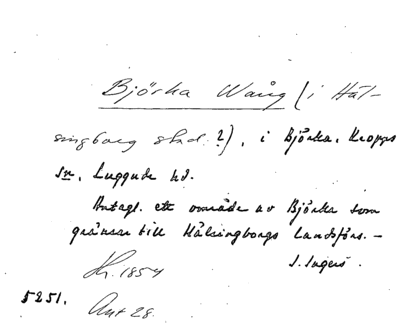 Björka Wång (i Häl-
singborg stad?), i Björka, Kropps
sn, Luggude hd.
Antagl. ett område av Björka som
gränsar till Hälsingborgs landsförs. –
I. Ingers.
Kr. 1854
5251. Ant 28.